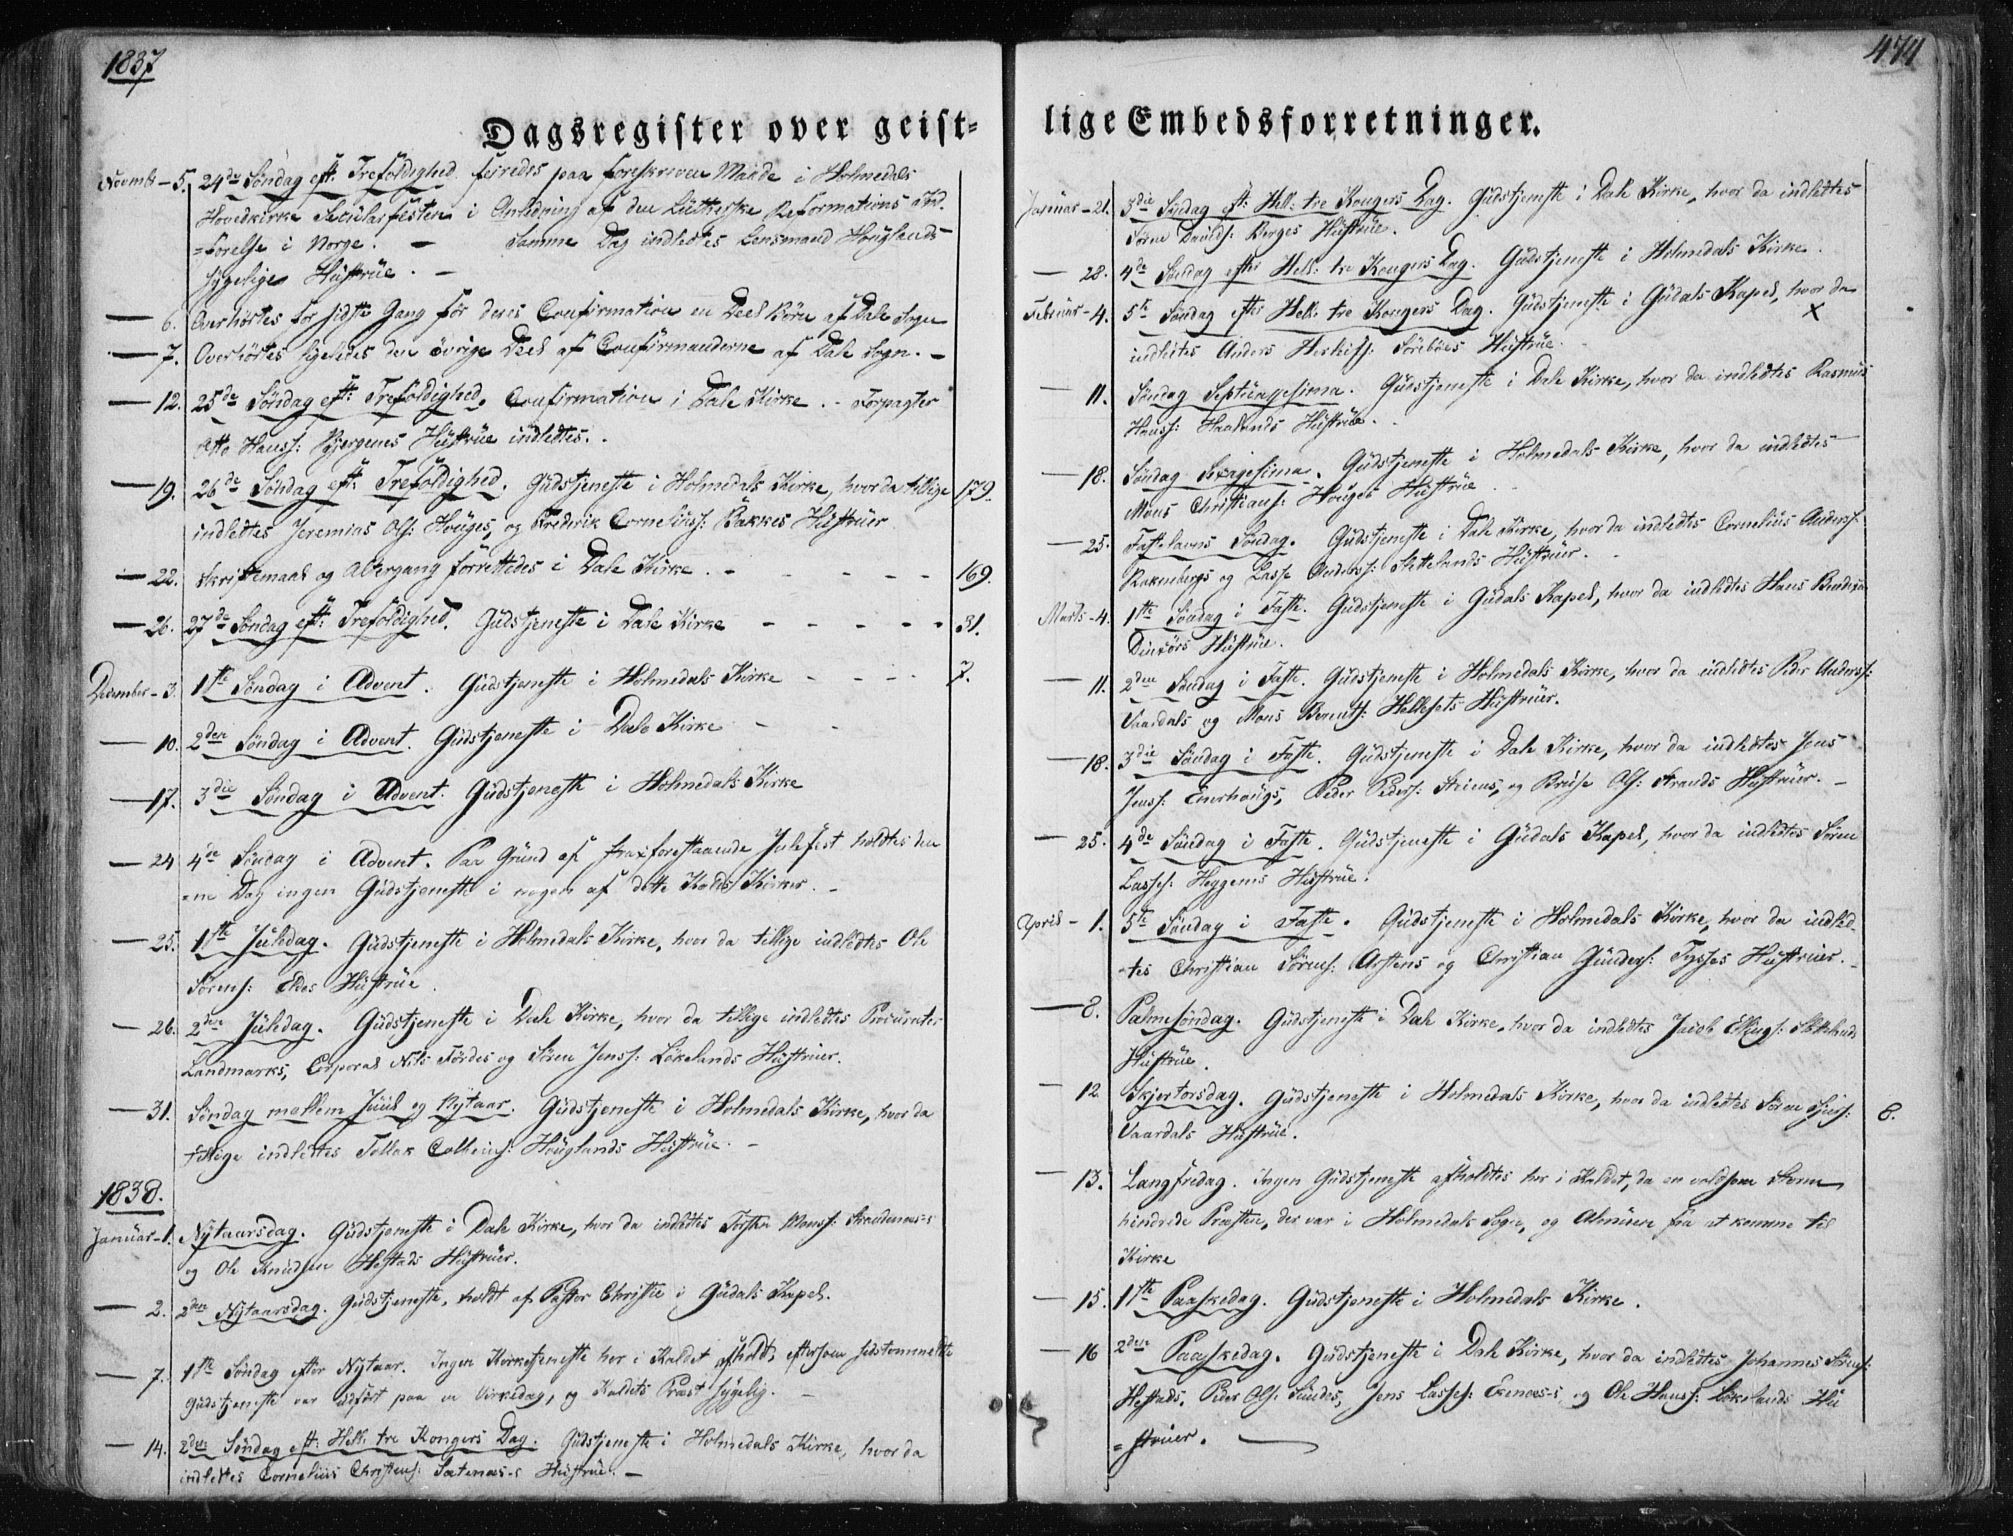 1837
Dagsregister over geist-
Novembr – 5. 24de Søndag eft: Trefoldighed feiredes paa foreskreven Maade i Holmedals
Hovedkirke Secularfesten i Anledning af den Lutherske Reformations Ind-
=førelse i Norge. – Samme Dag indledtes Lensmand Houglands
sygelige Hustrüe. –
— 6. Overhørtes for sidste Gang før deres Confirmation en Deel Børn af Dale Sogn
— 7. Overhørtes ligeledes den øvrige Deel af Confirmanderne af Dale Sogn. –
— 12. 25de Søndag eft: Trefoldighed. Confirmation i Dale Kirke. - Forpagter
Otto Hanss: Bjergenes Hustrüe indledtes.
— 19. 26de Søndag eft: Trefoldighed. Gudstjeneste i Holmedals Kirke, hvor da tillige 179.
indledtes Jeremias Ols: Houges, og Frederik Corneliuss: Bakkes Hustrüer
— 22. Skriftemaal og Altergang forrettedes i Dale Kirke. - - - - - 169.
— 26. 27de Søndag eft: Trefoldighed. Gudstjeneste i Dale Kirke - - - - - 31.
December – 3. 1ste Søndag i Advent. Gudstjeneste i Holmedals Kirke - - - - 7.
— 10. 2den Søndag i Advent. Gudstjeneste i Dale Kirke - -
— 17. 3die Søndag i Advent. Gudstjeneste i Holmedals Kirke
— 24 4de Søndag i Advent. Paa Grund af strax forestaaende Julefest holdtes den
=ne Dag ingen Gudstjeneste i nogen af dette Kalds Kirker. –
— 25. 1ste Juledag. Gudstjeneste i Holmedals Kirke, hvor da tillige indledtes Ole
Sørens: Eides Hustrüe.
— 26. 2den Juledag. Gudstjeneste i Dale Kirke, hvor da tillige indledtes Procurator
Landmarks, Corporal Nils Førdes og Søren Jenss: Løkelands Hustrüer.
— 31. Søndag mellem Juul og Nytaar. Gudstjeneste i Holmedals Kirke, hvor da
tillige indledtes Tollak Hoüglands Hustrüe. –
1838.
Januar – 1. Nytaarsdag. Gudstjeneste i Dale Kirke, hvor da indledtes Torsten Monss:
og Ole Knudsen Hestads Hustrüer.
— 2. 2den Nytaarsdag. Gudstjeneste, holdt af Pastor Christie i Gudals Kapel.
— 7. 1ste Søndag efter Nytaar. Ingen Kirketjeneste her i Kaldet afholdt, eftersom sidstommeldte
Gudstjeneste var udført paa en Virkedag, og Kaldets Præst sygelig. –
— 14. 2den Søndag eft: Hell: tre Kongers Dag. Gudstjeneste i Holmedals Kirke, hvor da
indledtes Cornelius Christens: Sætenæs-s Hustrüe. –
474
lige Embedsforretninger.
Januar – 21. 3die Søndag eft: Hell: tre Kongers Dag. Gudstjeneste i Dale Kirke, hvor da indledtes
Sørne Davids: Berges Hustrüe.
— 28. 4de Søndag efter Hell: tre Kongers Dag. Gudstjeneste i Holmedals Kirke.
Februar – 4. 5te Søndag efter Hell: tre Kongers Dag. Gudstjeneste i Gudals Kapel, hvor da
indledtes Anders Sørebøes Hustrüe. X
— 11. Søndag Septuagesima. Gudstjeneste i Dale Kirke, hvor da indledtes Rasmus
Hanss: Haalands Hustrüe.
— 18. Søndag Sexagesima. Gudstjeneste i Holmedals Kirke, hvor da indledtes
Mons Christians: Houges Hustrüe
— 25. Fastelavns Søndag. Gudstjeneste i Dale Kirke, hvor da indledtes Cornelius Anderss:
Raknebergs og Lasse Anderss: Slettelands Hustrüer.
Marts – 4. 1ste Søndag i Faste. Gudstjeneste i Gudals Kapel, hvor da indledtes Hans
Hustrüe.
— 11. 2den Søndag i Faste. Gudstjeneste i Holmedals Kirke, hvor da indledtes Peder Anderss:
Vaardals og Mons Berents: Hellesets Hustrüer.
— 18. 3die Søndag i Faste. Gudstjeneste i Dale Kirke, hvor da indledtes Jens
Jenss: Enerhougs, Peder Peders: Steiens, og Brüse Ols: Strands Hustrüer. –
— 25. 4de Søndag i Faste. Gudstjeneste i Gudals Kapel, hvor da indledtes Søren
Lasses: Heggenis Hustrüe.
April – 1. 5te Søndag i Faste. Gudstjeneste i Holmedals Kirke, hvor da indled-
-tes Christian Sørens: Arstens og Christian Gunders: Tysses Hustrüer. –
— 8. Palmesøndag. Gudstjeneste i Dale Kirke, hvor da indledtes Jacob Ellings: Slettelands
Hustrüe.
— 12 Skjertorsdag. Gudstjeneste i Holmedals Kirke, hvor da indledtes Søren 6.
Vaardals Hustrüe.
— 13. Langfredag. Ingen Gudstjeneste afholdtes her i Kaldet, da en voldsom Storm
hindrede Præsten, der var i Holmedals Sogn, og Almuen fra at komme til
Kirke
— 15. 1ste Paaskedag. Gudstjeneste i Holmedals Kirke.
— 16 2den Paaskedag. Gudstjeneste i Dale Kirke, hvor da indledtes Johannes Sørens:
Hestads, Peder Ols: Sundes, Jens Lasses: Ekenæs-s og Ole Hanss: Løkelands Hu
=struer.